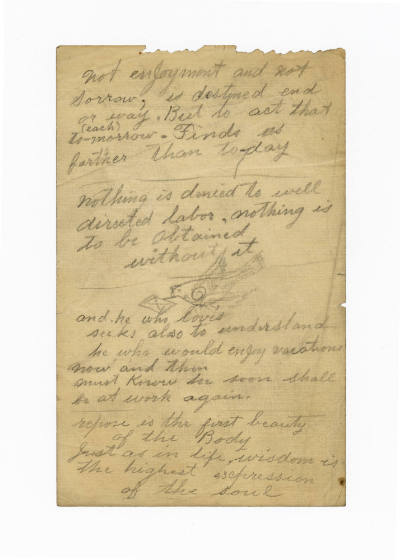 not enjoyment and not
sorrow, is destined end
or way. But to act that
(each)
to-morrow - Finds us
farther than to-day
nothing is denied to well
directed labor, nothing is
to be obtained
without it
and he who loves
seeks also to understand
he who would enjoy vacations
now and then
must know he soon shall
be at work again.
repose is the first beauty
of the Body
Just as in life, wisdom is
the highest expression
of the soul